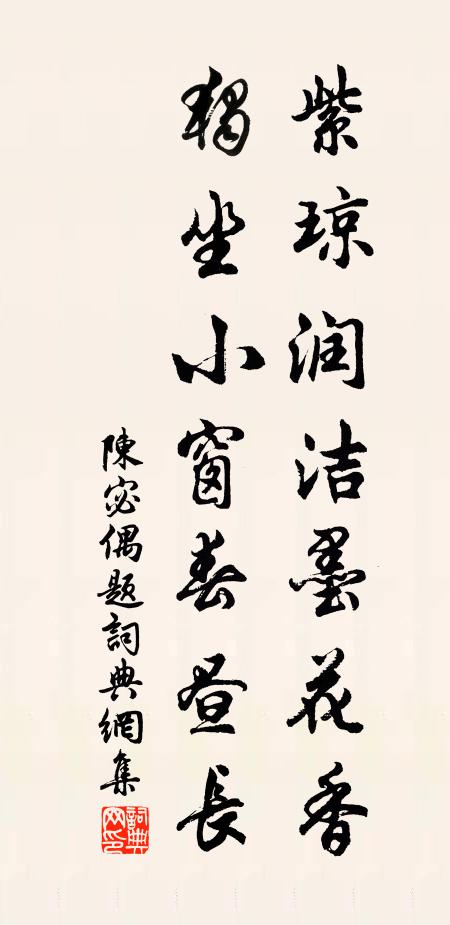 紫琼润洁墨花香
独坐小窗春昼長
陳宓偶题詞典網集
詞典网印